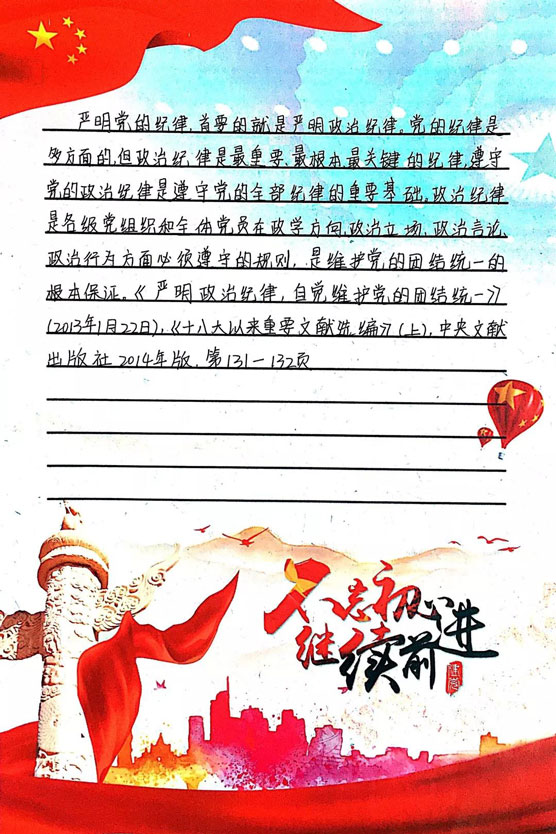 严明党的纪律,首要的就是严明政治纪律。党的纪律是
多方面的,但政治纪律是最重要、最根本最关键的纪律,遵守
党的政治纪律是遵守党的全部纪律的重要基础。政治纪律
是各级党组织和全体党员在政学方向、政治立场、政治言论、
政治行为方面必须遵守的规则,是维护党的团结统一的
根本保证。《严明政治纪律,自觉维护党的团结统一》
(2013年1月22日),《十八大以来重要文献选编》(上),中央文献
出版社2014年版,第131—132页
不忘初心
继续前进